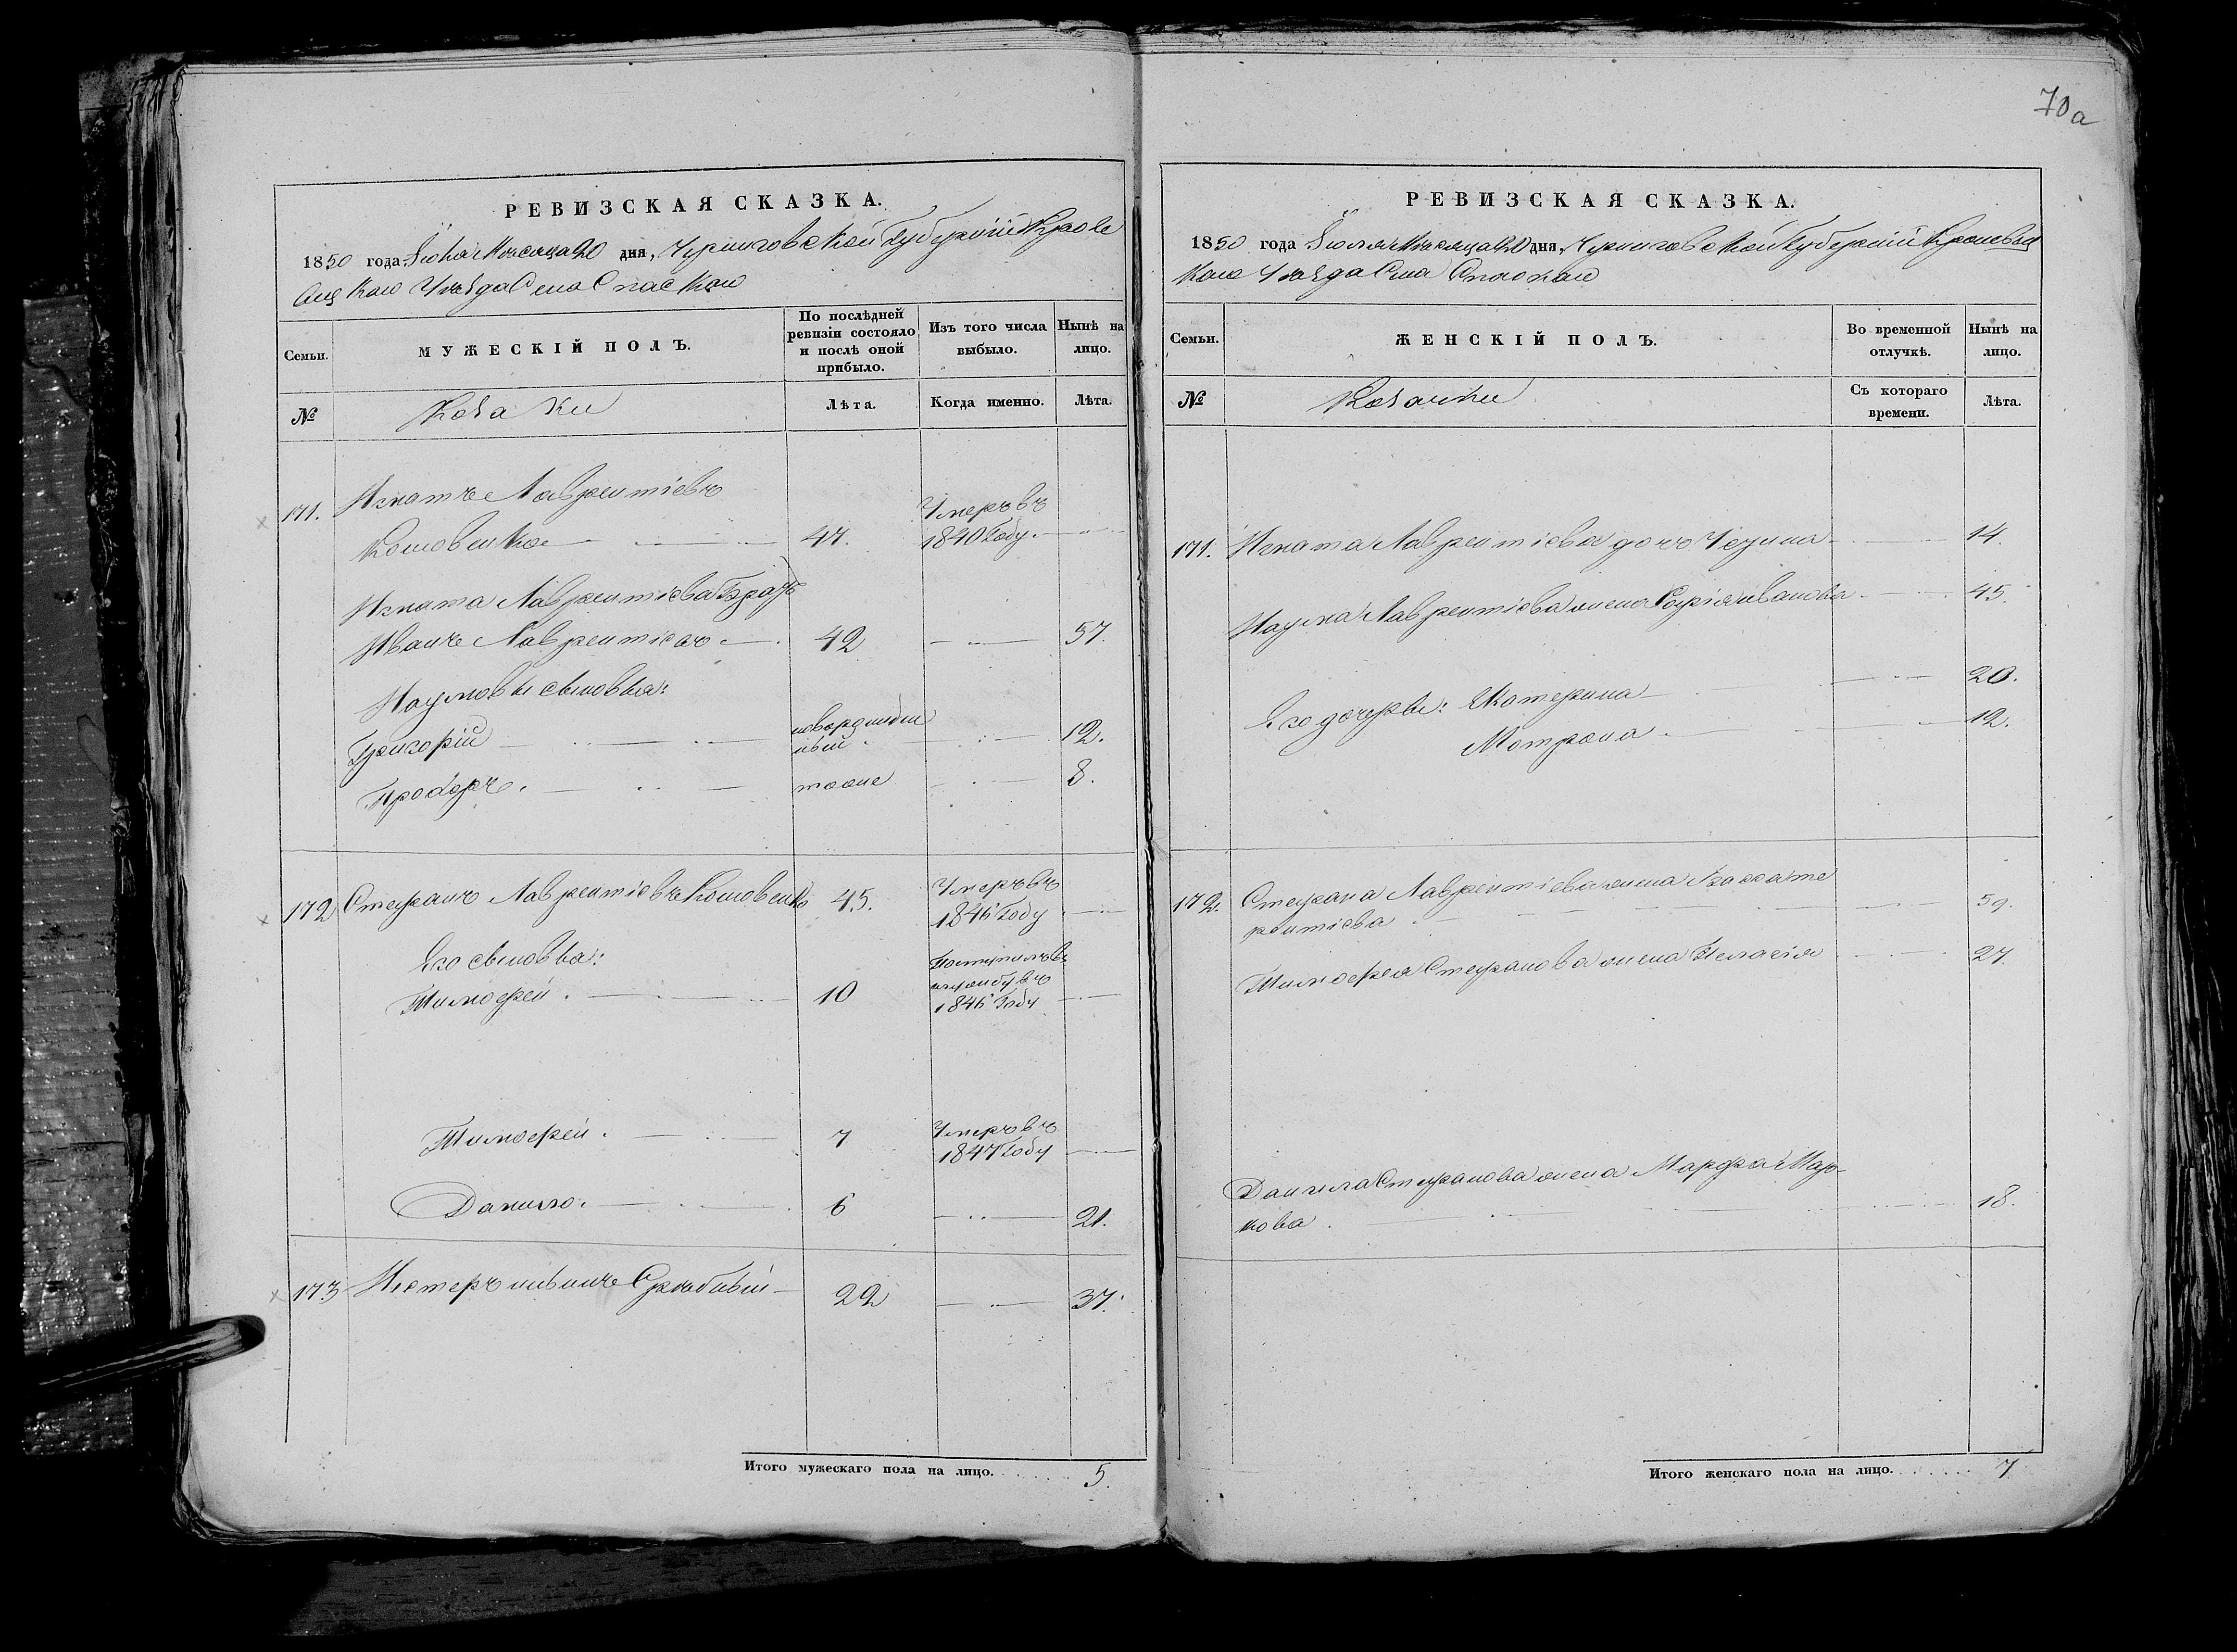 РЕВИЗСКАЯ СКАЗКА.
1850 года Іюля Мѣсяца 20 дня, Черниговской Губерніи Кроле
вец Каго Уѣзда Села Спаскаго
Семьи.
МУЖЕСКІЙ ПОЛЪ.
По послѣдней ревизіи состояло и послѣ оной прибыло.
Изъ того числа выбыло.
Нынѣ на лицо.
№
Козаки
Лѣта.
Когда именно.
Лѣта.
171. Игнатъ Лаврентіевъ
Умеръ въ
47. 1840 Году.
Игната Лаврентіева Братъ
Иванъ Лаврентіевъ 42 57.
Наумовы сыновья:
Григорій новорожден
ный 12.
Прохоръ. тоже 8.
172 Стефанъ Лаврентіевъ 45. Умеръ въ
1846 Году
Его сыновья:
Тимофей. 10
1846 Году
Тимофей. 7 Умеръ въ
1847 Году
Данило. 6 21.
173 Нестеръ 22 37.
Итого мужескаго пола на лицо. 5.
70а
РЕВИЗСКАЯ СКАЗКА.
1850 года Іюля Мѣсяца 20 дня, Черниговской Губерніи Кролевец
Каго Уѣзда Села Спаскаго
Семьи.
ЖЕНСКІЙ ПОЛЪ.
Во временной отлучкѣ.
Нынѣ на лицо.
№
Козачки
Съ котораго времени.
Лѣта.
171. Игната Лаврентіева дочь 14.
Наума Лаврентіева жена Софія Иванова 45.
Его дочери: Катерина 20.
Мотрона 12.
172. Стефана Лаврентіева жена
59.
Тимофея Стефанова жена Пелагія 27.
Данила Стефанова жена Марфа Мар-
кова. 18.
Итого женскаго пола на лицо. 7